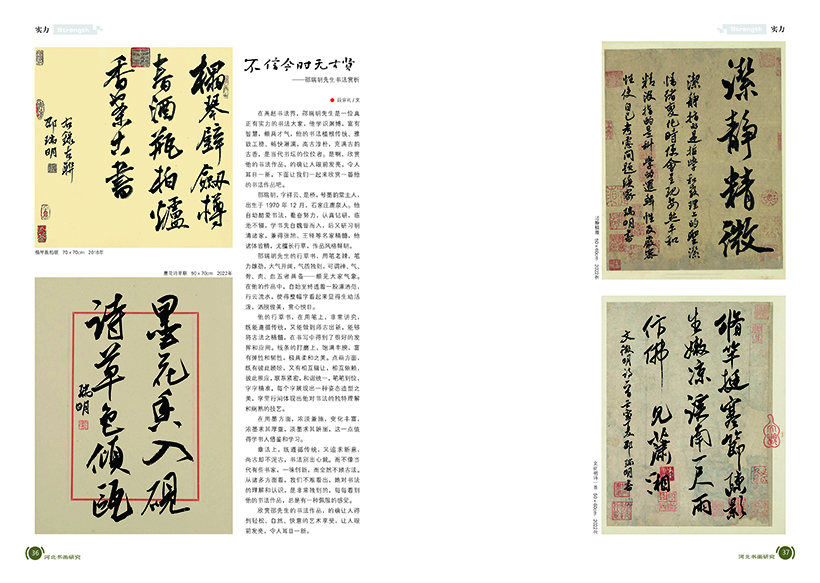 实力 Strength
榻琴壁劍樽
香酒瓶拍爐
香茶古書
右錄古聯
邵瑞明
榻琴瓶拍联 70×70cm 2018年
墨花香入砚
诗草色倾瓯
瑞明
墨花诗草联 50×70cm 2022年
不信今时无古贤
——邵瑞明先生书法赏析
在燕赵书法界，邵瑞明先生是一位真
正有实力的书法大家，他学识渊博，富有
智慧，颇具才气。他的书法植根传统，雅
致工稳，畅快淋漓，高古淳朴，充满古韵
古香，是当代书坛的佼佼者。是啊，欣赏
他的书法作品，的确让人眼前发亮，令人
耳目一新。下面让我们一起来欣赏一番他
的书法作品吧。
邵瑞明，字祥云，是桥，号墨韵堂主人，
出生于 1970 年 12 月，石家庄鹿泉人。他
自幼酷爱书法，勤奋努力，认真钻研，临
池不辍。学书先自魏晋而入，后又研习明
清诸家，兼得张旭、王铎等名家精髓。他
诸体皆精，尤擅长行草，作品风格鲜明。
邵瑞明先生的行草书，用笔老辣，笔
力雄劲，大气开阔，气质独到，可谓神、气、
骨、肉、血五者具备——颇见大家气象。
在他的作品中，自始至终透着一股潇洒范，
行云流水，使得整幅字看起来显得生动活
泼，洒脱俊美，赏心悦目。
他的行草书，在用笔上，非常讲究，
既能遵循传统，又能做到师古出新，能够
将古法之精髓，在书写中得到了很好的发
挥和应用。线条的打磨上，饱满丰腴，富
有弹性和韧性，极具柔和之美。点画方面，
既有彼此顾盼，又有相互辅让，相互依赖，
彼此照应，联系紧密，和谐统一。笔笔到位，
字字精准，每个字展现出一种姿态造型之
美，字里行间体现出他对书法的独特理解
和娴熟的技艺。
在用墨方面，浓淡兼施，变化丰富，
浓墨求其厚重，淡墨求其娇丽，这一点值
得学书人借鉴和学习。
章法上，既遵循传统，又追求新意，
尚古却不泥古，书法别出心裁，而不像当
代有些书家，一味创新，而全然不顾古法。
从诸多方面看，我们不难看出，她对书法
的理解和认识，是非常独到的，每每看到
他的书法作品，总是有一种飘逸的感受。
欣赏邵先生的书法作品，的确让人得
到轻松、自然、快意的艺术享受，让人眼
前发亮，令人耳目一新。
36 河北书画研究
Strength 实力
潔靜精微
瑞明書
洁静精微 50×60cm 2022年
脩竿挺寒節 疎影
生嫩凉 渓南一尺雨
仿佛 見蕭湘
文徵明詩一首 邵瑞明書
文徵明诗一首 50×60cm 2022年
河北书画研究 37